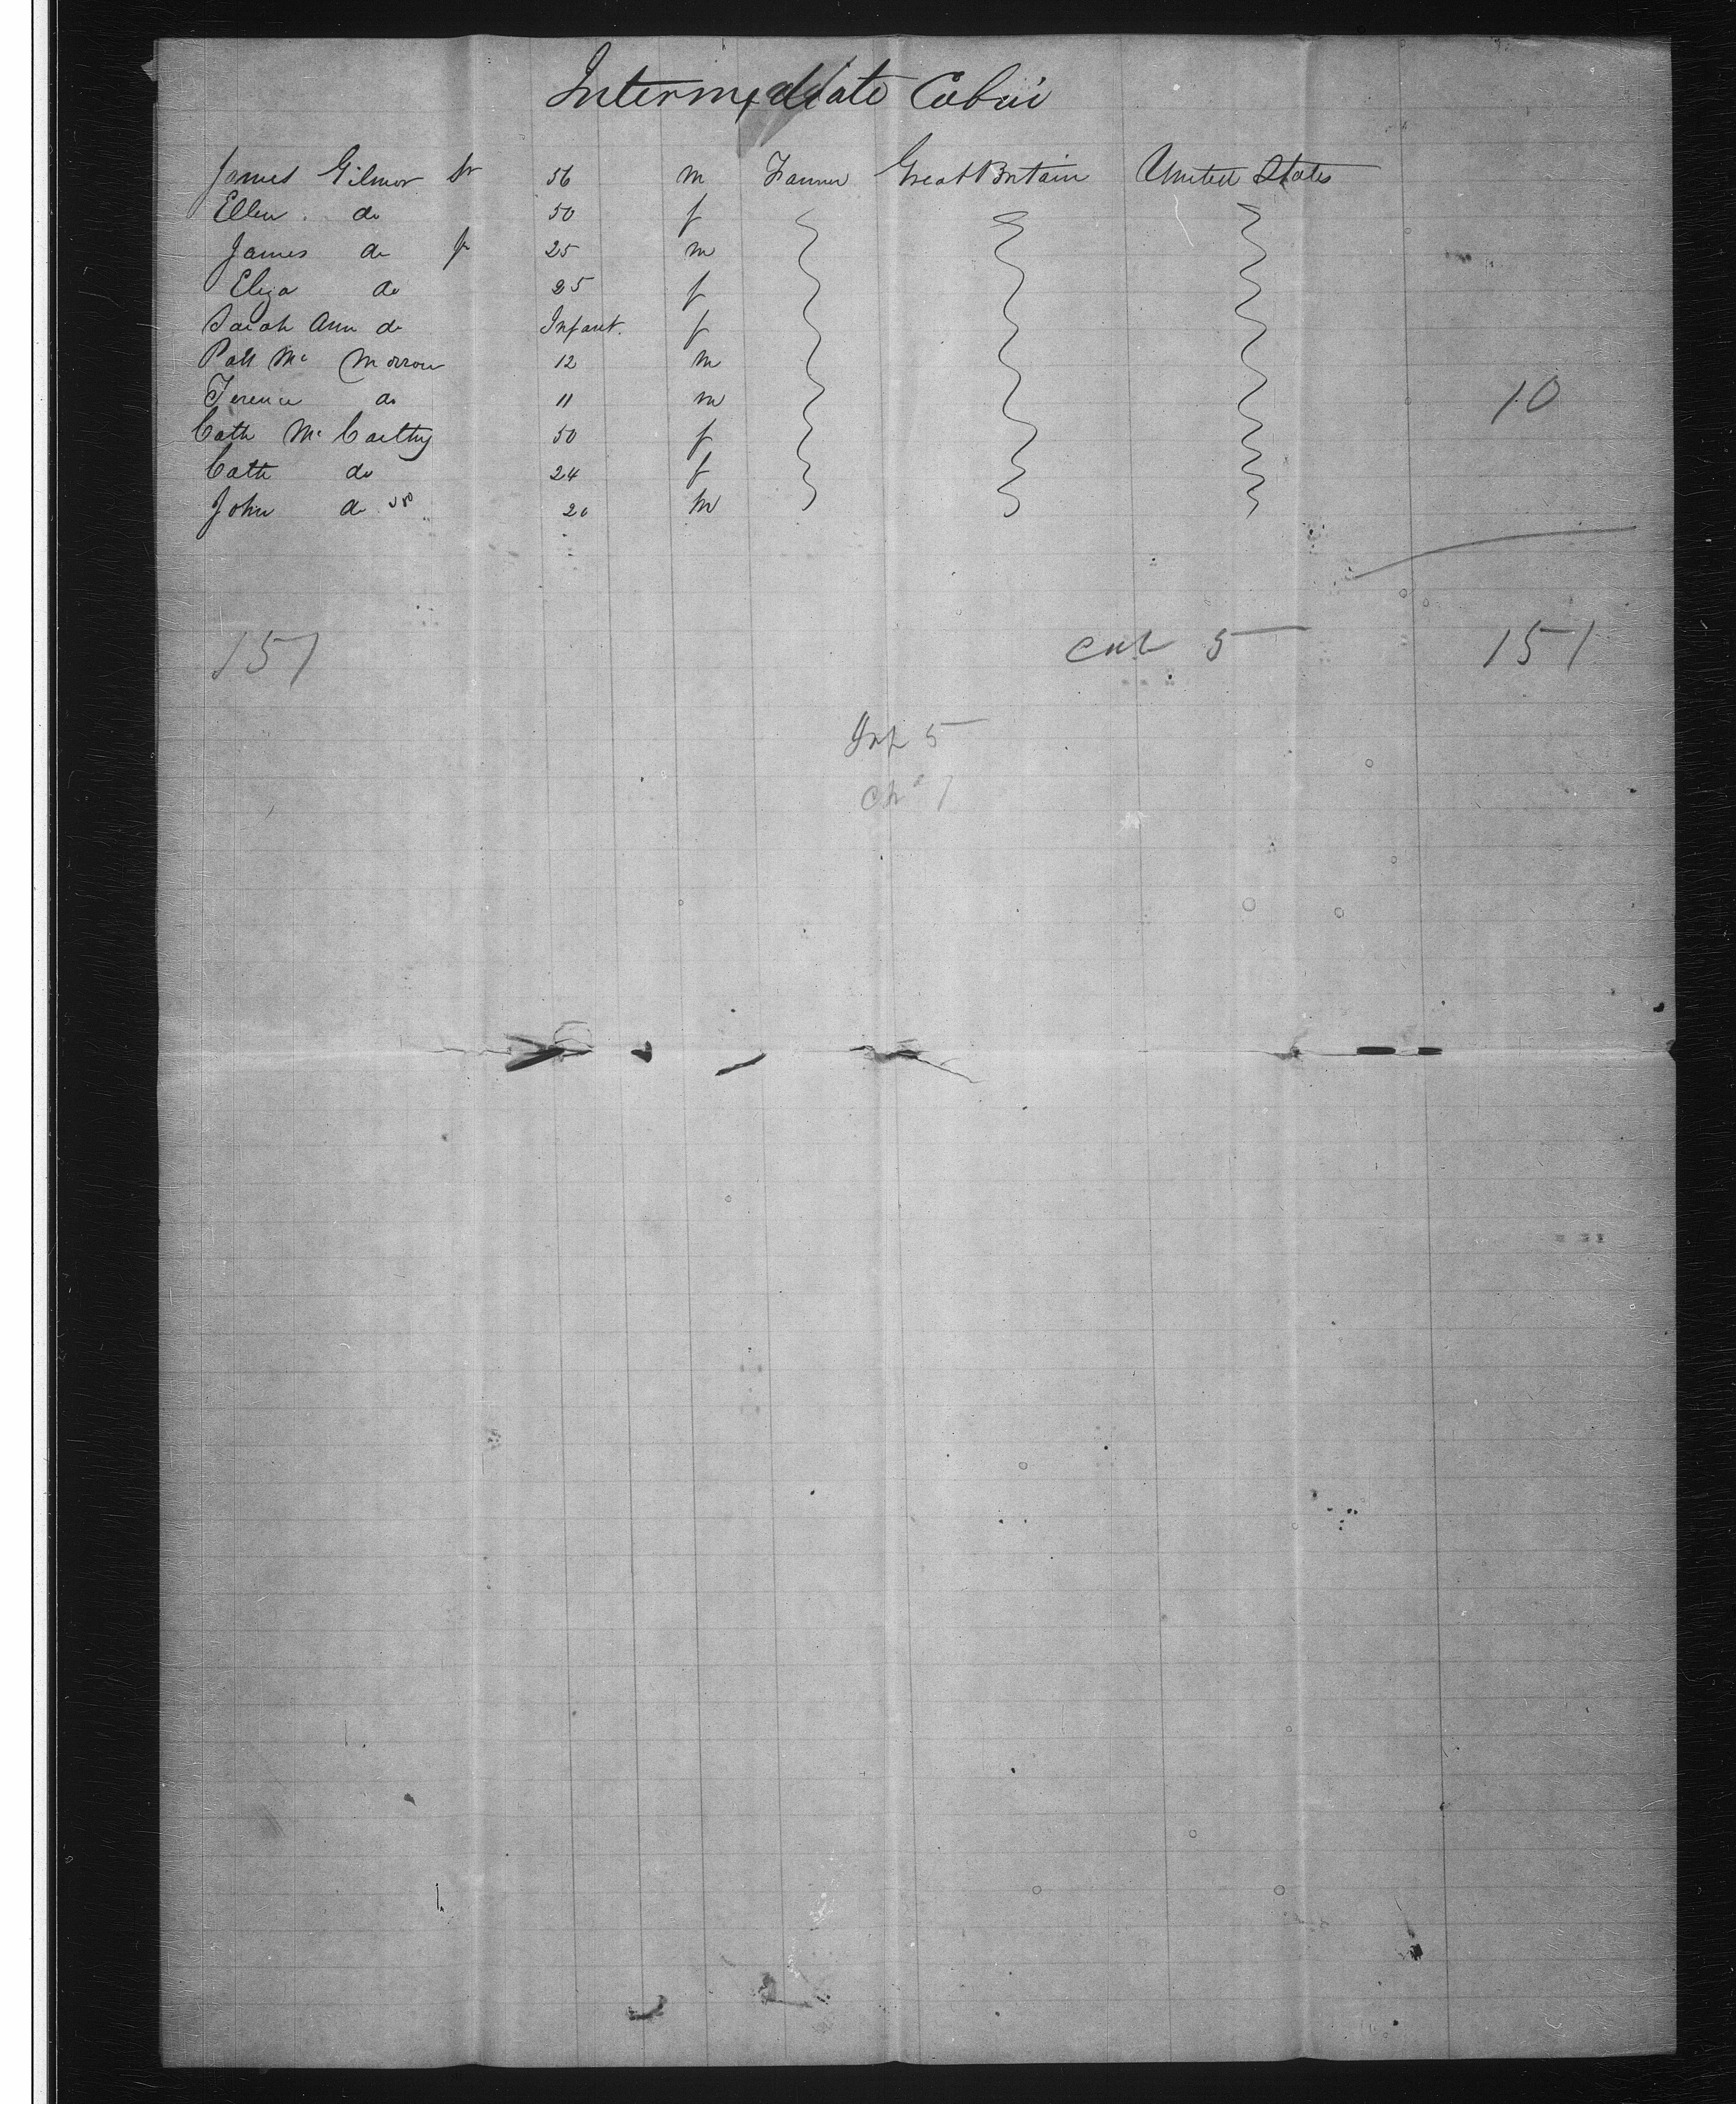 Intermediate Cabin
James Gilmor Sr 56 m Farmer Great Britain United States
Ellen do 50 f
James do Jr 25 m
Eliza do 25 f
Sarah Ann do Infant. f
Patk Mc Morrow 12 m
Terence do 11 m
10
Cath Mc Carthy 50 f
Cath do 24 f
John do 20 m
151 5 151
Inf 5
Chd 7